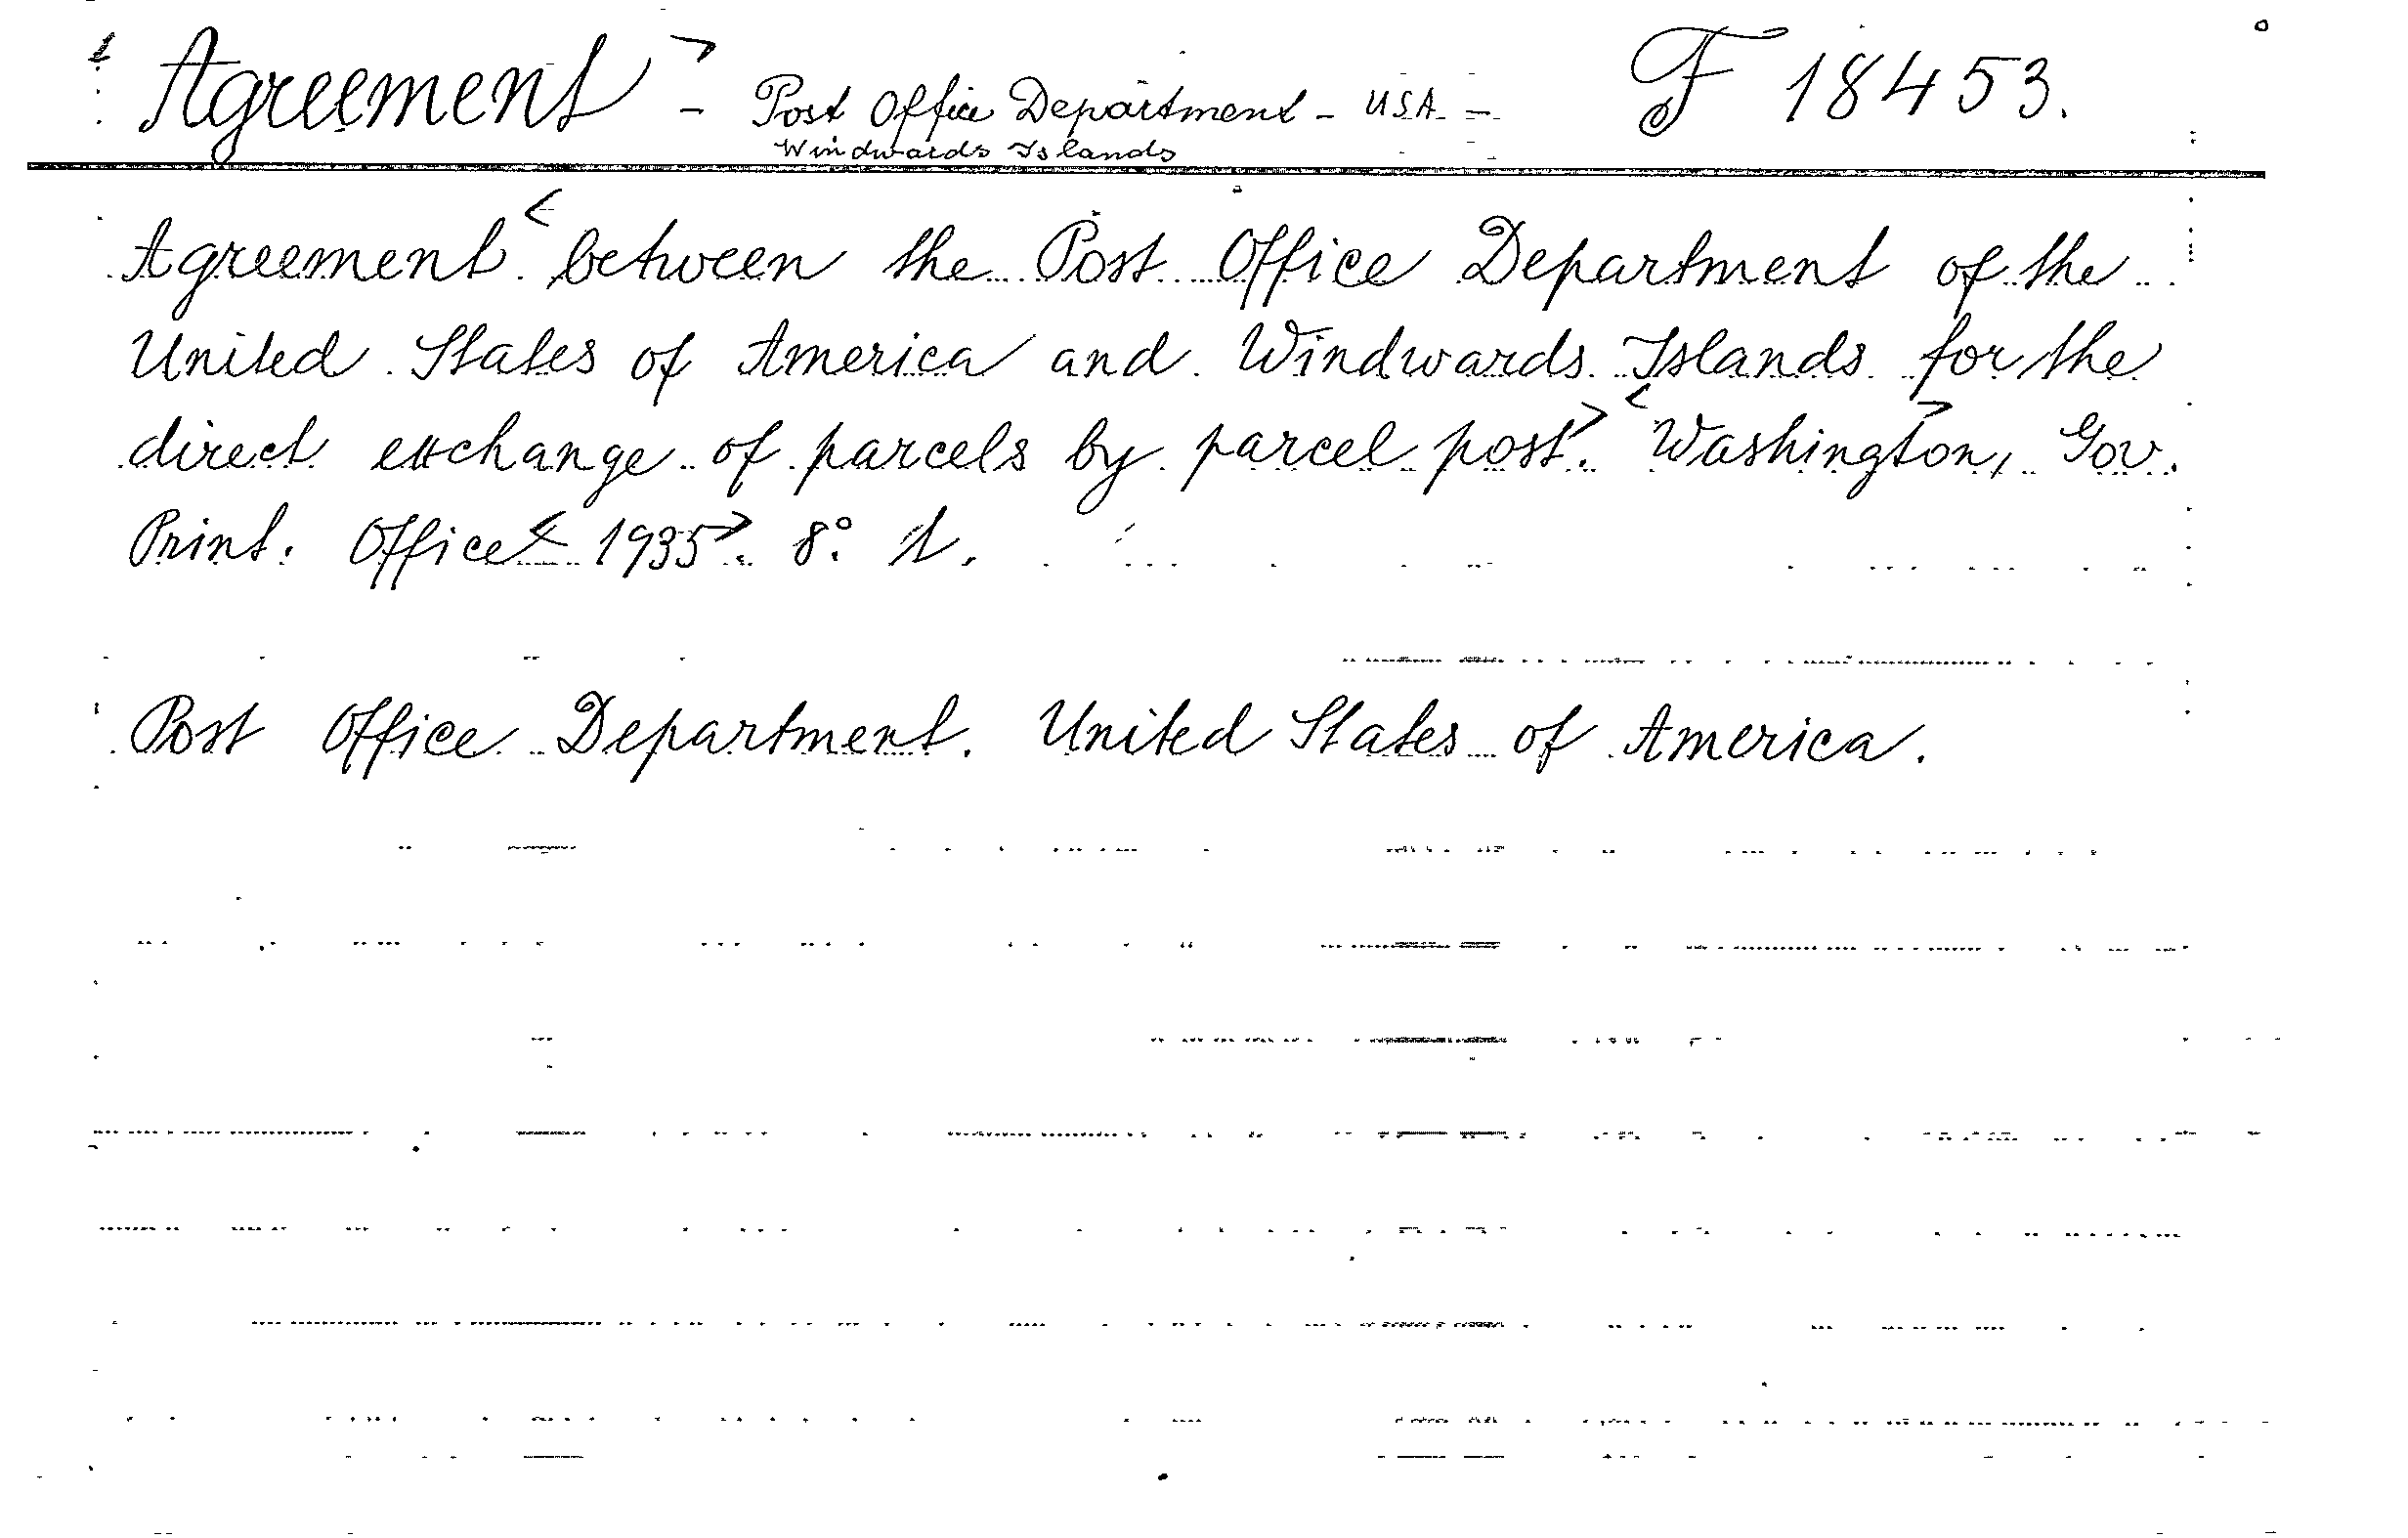 Agreement - Post Office Department - USA - F 18453.
Windwards Islands
Agreement between the Post Office Department of the
United States of America and Windwards Islands for the
direct exchange of parcels by parcel post. Washington, Gov.
Print. Office 1935. 8°. 1.
Post Office Department. United States of America.